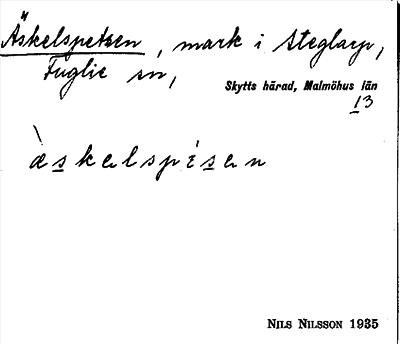 Äskelspetsen, mark i Steglarp,
Fuglie sn,
Skytts härad, Malmöhus län
13
àskelspísen
NILS NILSSON 1935